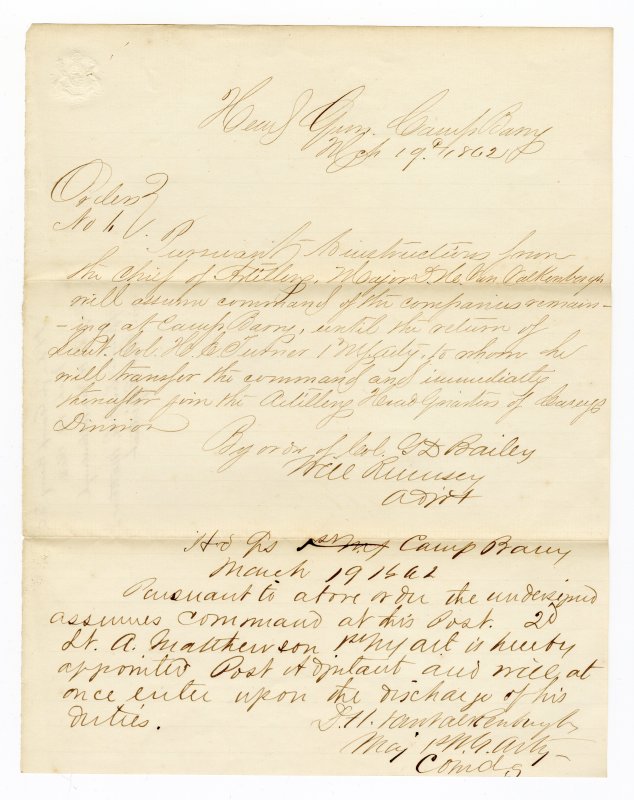 Head Qurs. Camp Barry
Mch 19th, 1862
Orders
No 6.
Pursuant to instructions from
the Chief of Artillery, Major D. H. Van Valkenburgh
will assume command of the companies remain-
-ing at Camp Barry, until the return of
Lieut. Col. H. E. Turner 1st NY Arty, to whom he
will transfer the command and immediately
thereafter join the Artillery Head Quarters of Casey's
Division
By order of Col. G D Bailey
Will Rumsey
Adjt
Hd Qrs Camp Barry
March 19 1862
Pursuant to above order the undersigned
assumes command at this Post. 2d
Lt. A. Matthewson 1st NY art is hereby
appointed Post Adjutant and will at
once enter upon the discharge of his
duties.
D. H. Van Valkenburgh
Maj 1st N.Y. Arty
Comdg